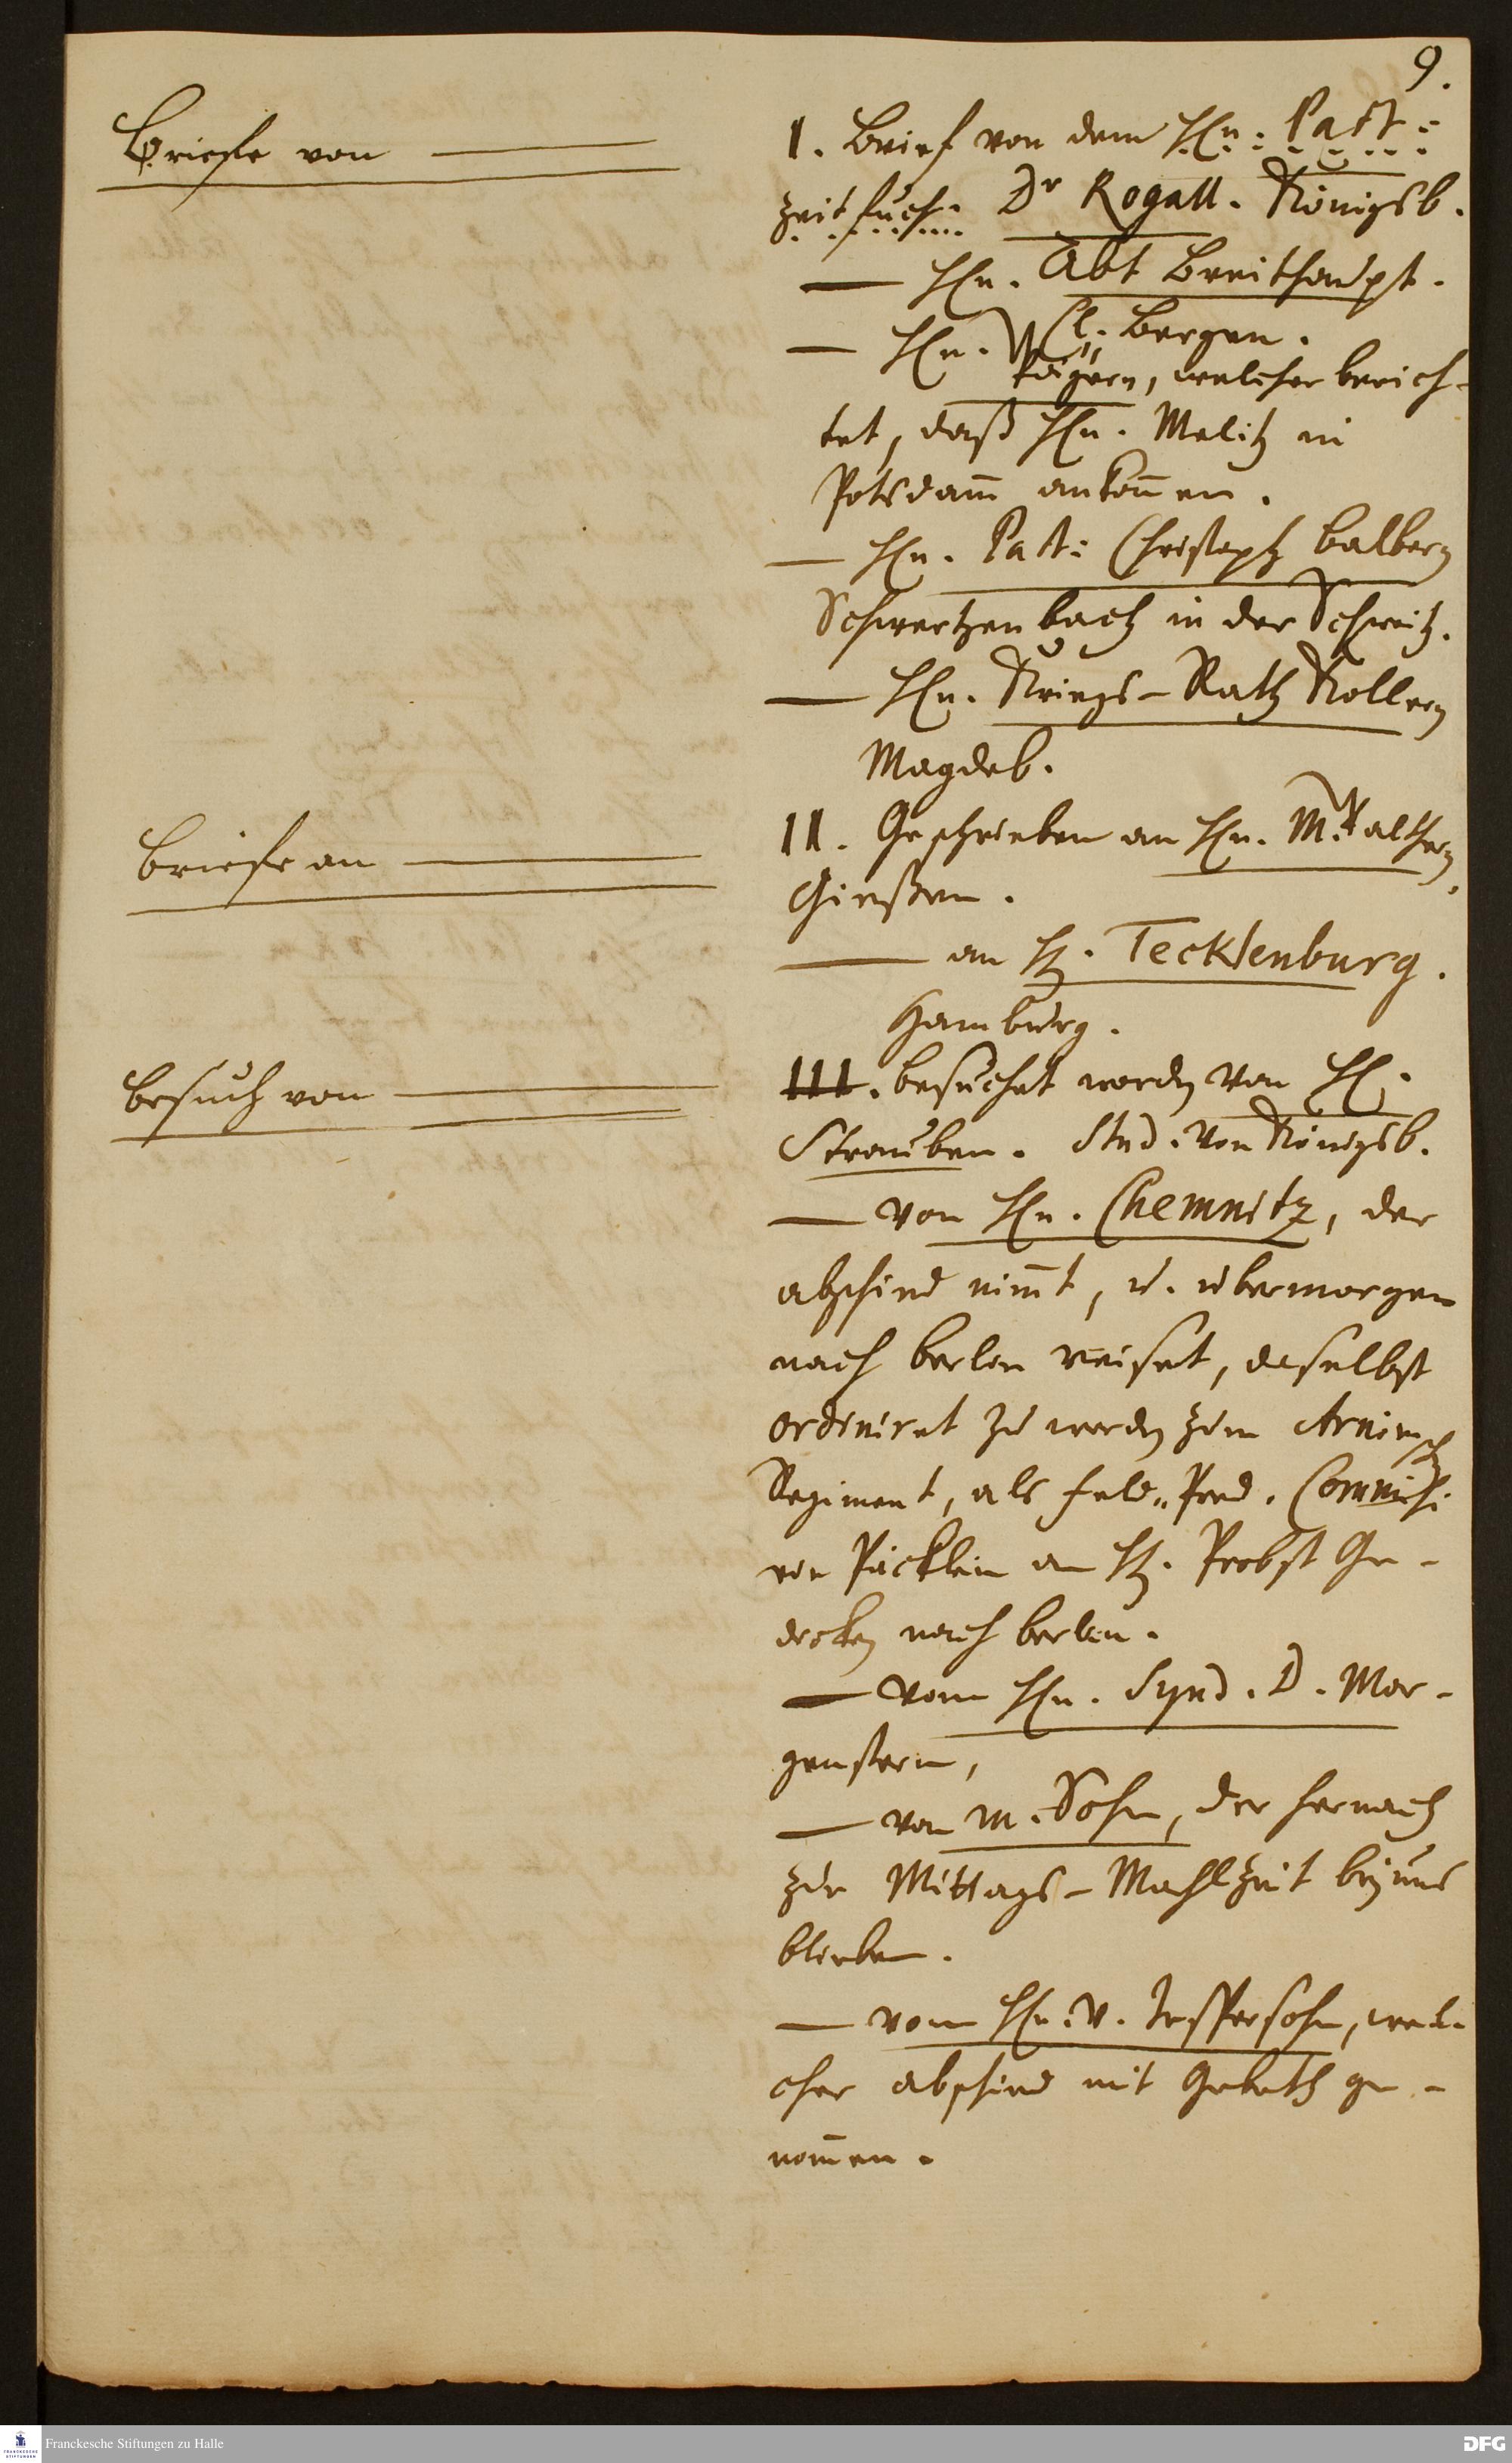 9.
Briefe von
I. Brief von dem Hn: Past:
Dr Rogall. Königsb.
Hn. Abt Breithaupt.
Cl. Bergen.
Hn. welcher berich-
tet, daß Hn. Melitz in
Potsdam̄ ankom̄en.
Hn. Past: Christoph Balbern
Schwertzenbach in der Schweitz.
Hn. Kriegs-Rath Kollern
Magdeb.
Briefe an
II. Geschrieben an Hn. M. Walthern,
Gießen.
an H. Tecklenburg.
Hamburg.
Besuch von
III. Besuchet worden von H.
Strauben. Stud. von Königsb.
von Hn. Chemnitz, der
abschied nim̄t, u. übermorgen
nach Berlin reiset, daselbst
ordiniret zu werden zum Arnimsch
Regiment, als Feld-Pred.
ein Päcklein an H. Probst Ge-
dicken nach Berlin.
vom Hn. Synd. D. Mor-
genstern,
von m. Sohn, der hernach
zur Mittags-Mahlzeit bey uns
blieben.
vom Hn. v. wel-
cher abschied mit Gebeth ge-
nom̄en.
Franckesche Stiftungen zu Halle
DFG